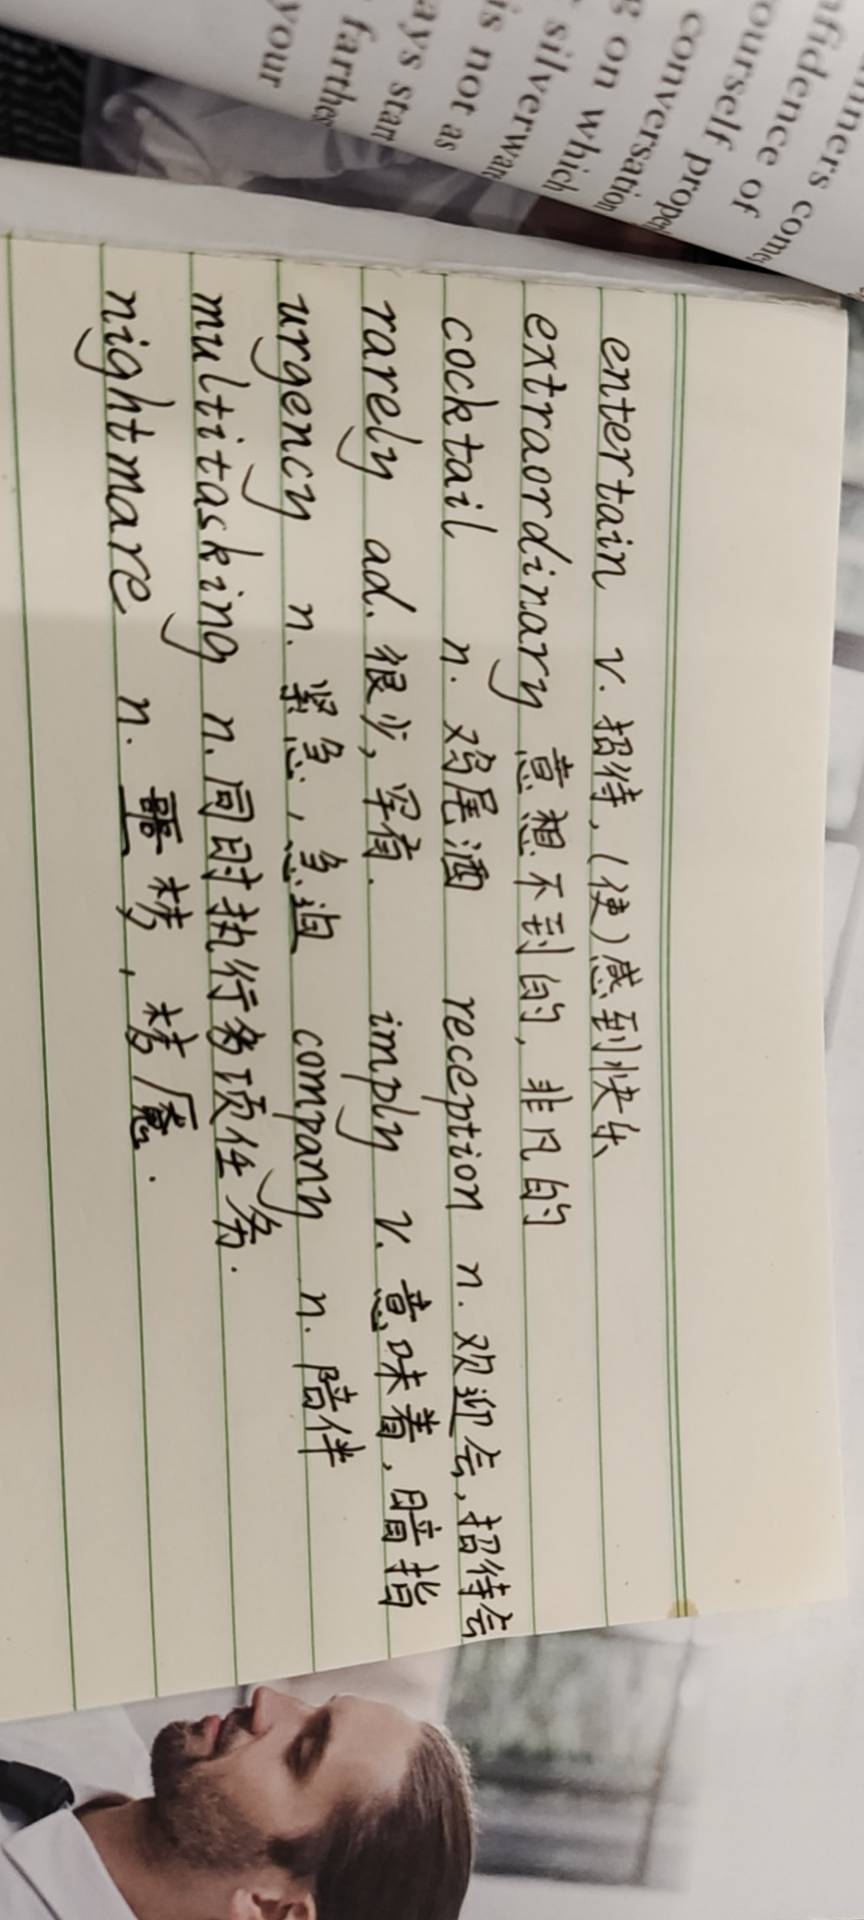 ners come
nfidence of
ourself proper
conversation
g on which
silverware
is not as
ays star
farther
your
entertain v. 招待, (使)感到快乐
extraordinary 意想不到的, 非凡的
cocktail n. 鸡尾酒 reception n. 欢迎会, 招待会
rarely ad. 很少, 罕有. imply v. 意味着, 暗指
urgency n. 紧急, 急迫 company n. 陪伴
multitasking n. 同时执行多项任务.
nightmare n. 噩梦, 梦魇.